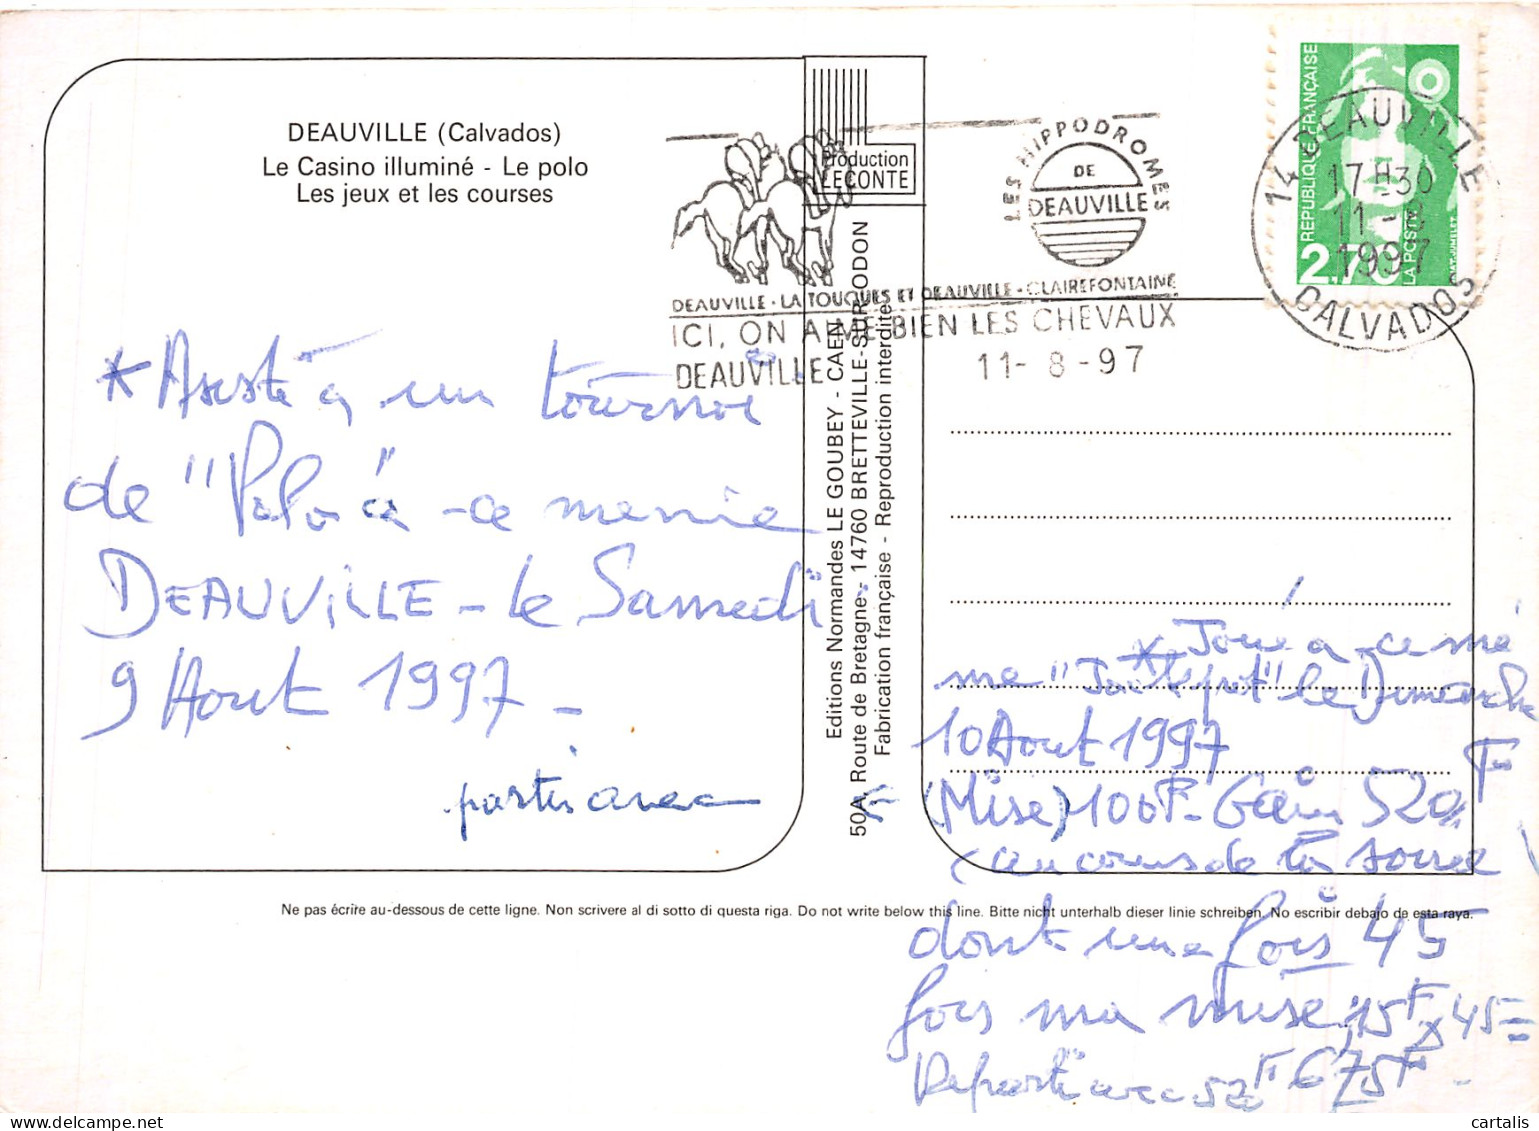 DEAUVILLE (Calvados)
Le Casino illuminé - Le polo
Les jeux et les courses
Production
LECONTE
LES HIPPODROMES
DE
DEAUVILLE
DEAUVILLE - LA TOUQUES ET DEAUVILLE - CLAIREFONTAINE
ICI, ON AIME BIEN LES CHEVAUX
DEAUVILLE
11-8-97
REPUBLIQUE FRANÇAISE
2,70
LA POSTE
14 DEAUVILLE
17H30
11-8
1997
CALVADOS
Editions Normandes LE GOUBEY - CAEN
50A, Route de Bretagne - 14760 BRETTEVILLE-SUR-ODON
Fabrication française - Reproduction interdite
* Assisté à un tournoi
de "Polo" à ce même
DEAUVILLE - le Samedi
9 Aout 1997 -
partis avec
* Joué à ce mê
me " " le Dimanche
10 Aout 1997
(Mise) 100F - Gain 520F
(au cours de la soirée
dont une fois 45
fois ma mise, 15F x 45 =
Reparti avec 52 F 675F
Ne pas écrire au-dessous de cette ligne. Non scrivere al di sotto di questa riga. Do not write below this line. Bitte nicht unterhalb dieser linie schreiben. No escribir debajo de esta raya.
cartalis